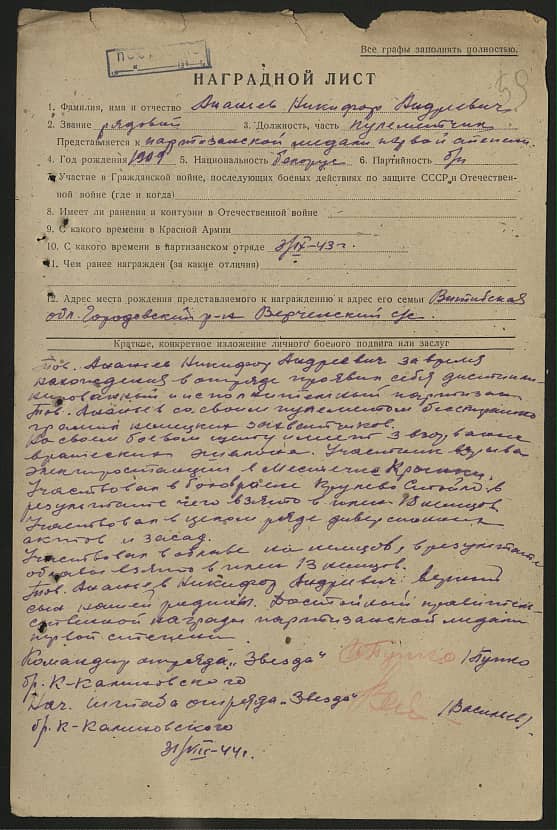 Все графы заполнять полностью.
59
НАГРАДНОЙ ЛИСТ
1. Фамилия, имя и отчество Ананьев Никифор Андреевич
2. Звание рядовой 3. Должность, часть пулеметчик
Представляется к партизанской медали первой степени
4. Год рождения 1909 5. Национальность белорус 6. Партийность б/п
7. Участие в Гражданской войне, последующих боевых действиях по защите СССР и Отечествен-
ной войне (где и когда)
8. Имеет ли ранения и контузии в Отечественной войне
9. С какого времени в Красной Армии
10. С какого времени в партизанском отряде IX-43 г.
11. Чем ранее награжден (за какие отличия)
12. Адрес места рождения представляемого к награждению и адрес его семьи Витибская
обл. Городокский р-н Верченский с/с
Краткое, конкретное изложение личного боевого подвига или заслуг
Тов. Ананьев Никифор Андреевич за время
нахождения в отряде проявил себя дисципли-
нированный и исполнительный партизан
Тов. Ананьев со своим пулеметом бесстрашно
громил немецких захватчиков.
На своем боевом щету имеет 3 взорванных
вражеских эшелона. Участник взрыва
электростанции в местечке Крынки.
Участвовал в бою в результате чего взято в плен 18 немцов
Участвовал в целом ряде диверсионных
актов и засад.
Участвовал в облаве на немцов, в результате
облавы взято в плен 13 немцов.
Тов. Ананьев Никифор Андреевич верный
сын нашей родины. Достойный правитель-
ственной награды партизанской медали
первой степени
Командир отряда „Звезда" /Пупко
бр. К-Калиновского
Нач. штаба отряда „Звезда" /Васильев/.
бр. К-Калиновского
VII-44 г.